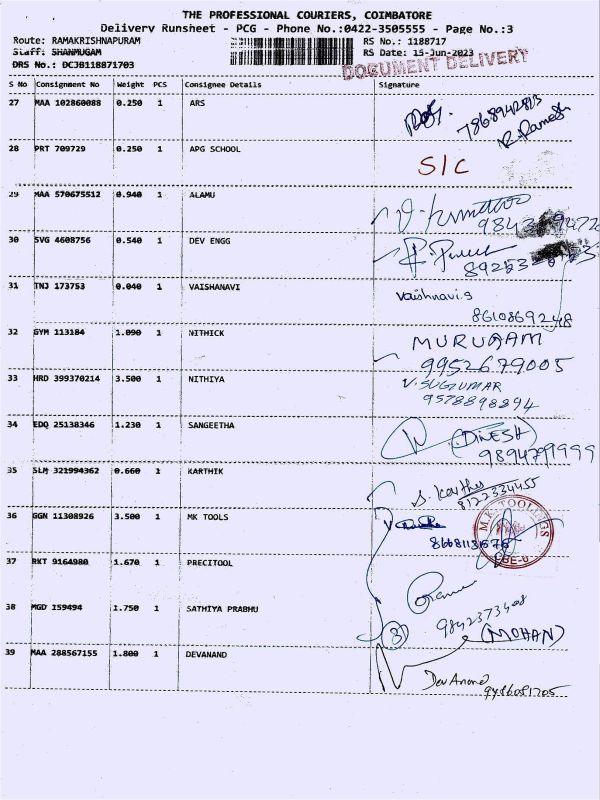 THE PROFESSIONAL COURIERS, COIMBATORE
Delivery Runsheet - PCG - Phone No.:0422-3505555 - Page No.:3
Route: RAMAKRISHNAPURAM RS No.: 1188717
Staff: SHANMUGAM RS Date: 15-Jun-2023
DRS No.: DCJB118871703 DOCUMENT DELIVERY
S No Consignment No Weight PCS Consignee Details Signature
27 MAA 102860088 0.250 1 ARS
R. Ramesh
28 PRT 709729 0.250 1 APG SCHOOL S/C
29 MAA 570675512 0.940 1 ALAMU
30 SVG 4608756 0.540 1 DEV ENGG
31 TNJ 173753 0.040 1 VAISHANAVI Vaishnavi.s
8610869248
32 GYM 113184 1.090 1 NITHICK MURUGAM
9952679005
33 HRD 399370214 3.500 1 NITHIYA V. SUGUMAR
9578898894
34 EDQ 25138346 1.230 1 SANGEETHA (DINESH)
9894791999
35 SLM 321994362 0.660 1 KARTHIK S. Karthi
8122334455
36 GGN 11308926 3.500 1 MK TOOLS M.K. TOOLINGS
CBE-6
37 RKT 9164980 1.670 1 PRECITOOL
38 MGD 159494 1.750 1 SATHIYA PRABHU 9842373408
3 (MOHAN)
39 MAA 288567155 1.800 1 DEVANAND
Dev Anand
9486081705